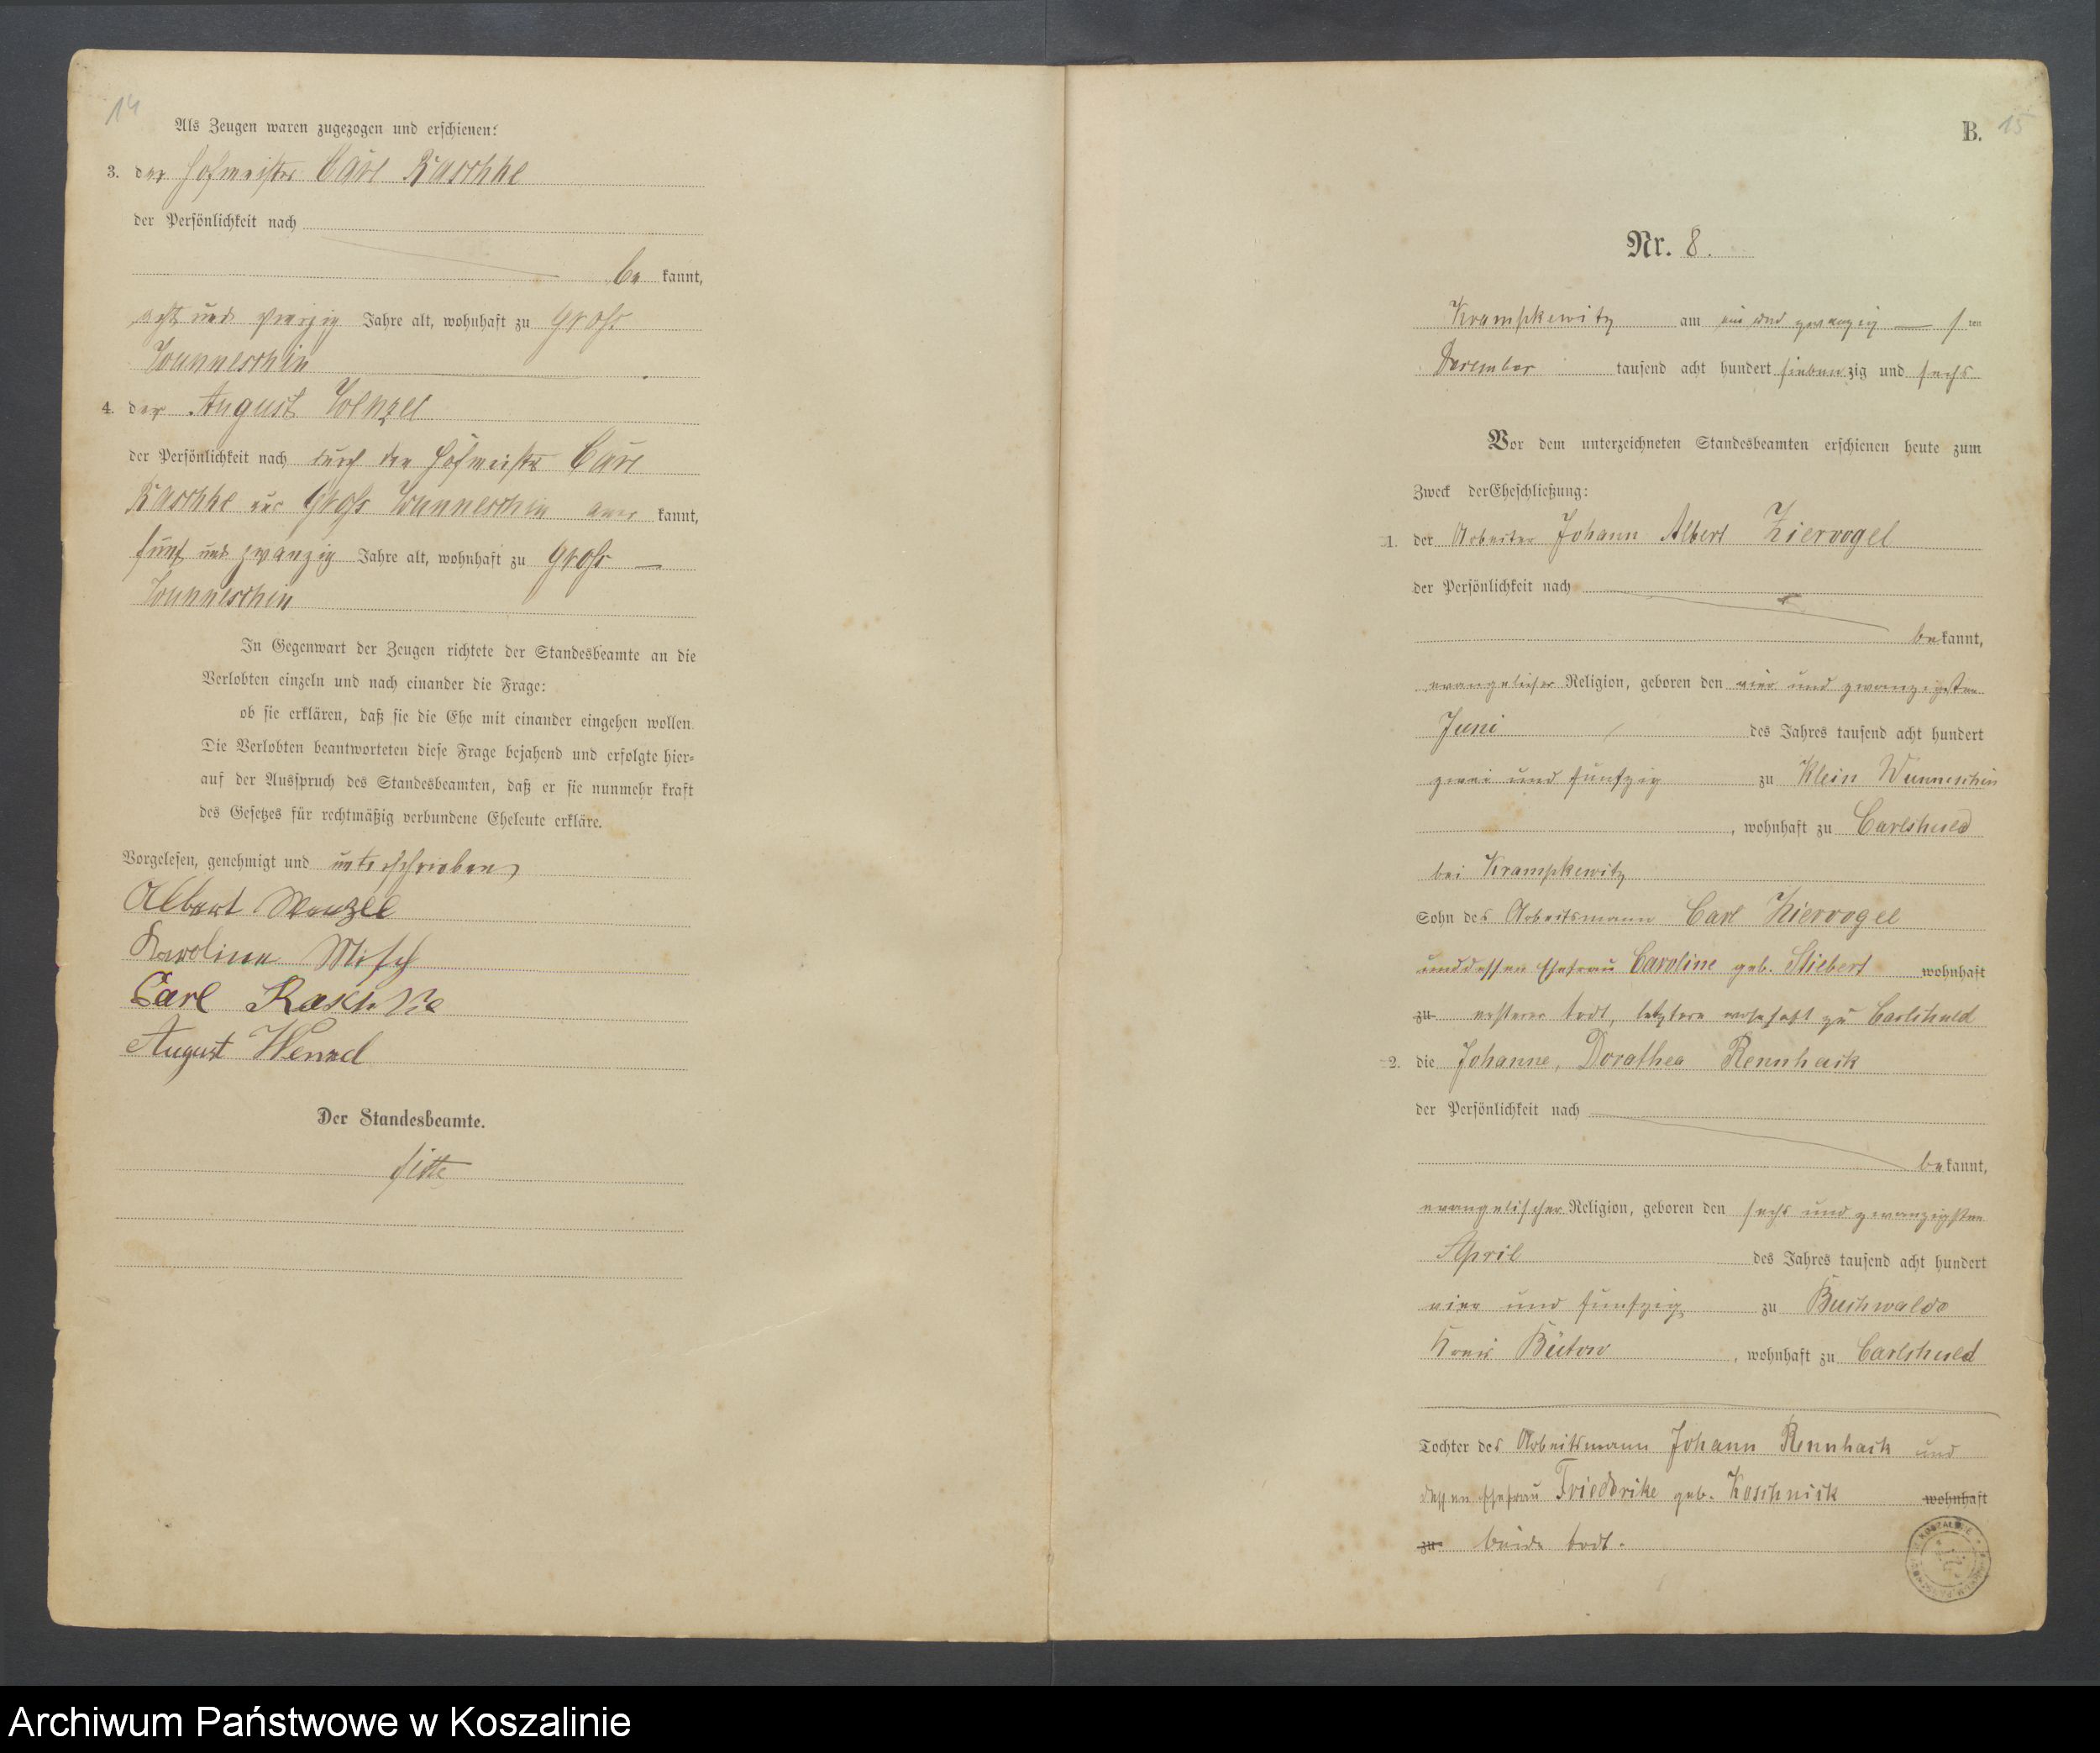 14
Als Zeugen waren zugezogen und erschienen:
3. der Hofmeister Carl Raschke
der Persönlichkeit nach
be kannt,
acht und vierzig Jahre alt, wohnhaft zu Groß
Wunneschin
4. der August Wenzel
der Persönlichkeit nach durch den Hofmeister Carl
Raschke aus Groß Wunneschin aner kannt,
fünf und zwanzig Jahre alt, wohnhaft zu Groß
Wunneschin
In Gegenwart der Zeugen richtete der Standesbeamte an die
Verlobten einzeln und nach einander die Frage:
ob sie erklären, daß sie die Ehe mit einander eingehen wollen.
Die Verlobten beantworteten diese Frage bejahend und erfolgte hier-
auf der Ausspruch des Standesbeamten, daß er sie nunmehr kraft
des Gesetzes für rechtmäßig verbundene Eheleute erkläre.
Vorgelesen, genehmigt und unterschrieben
Albert Wenzel
Karoline Misch
Carl Raschke
August Wenzel
Der Standesbeamte.
B. 15
Nr. 8.
Krampkewitz am ein und zwanzig s ten
December tausend acht hundert siebenzig und sechs
Vor dem unterzeichneten Standesbeamten erschienen heute zum
Zweck der Eheschließung:
1. der Arbeiter Johann Albert Ziervogel
der Persönlichkeit nach
bekannt,
evangelischer Religion, geboren den vier und zwanzigsten
Juni des Jahres tausend acht hundert
zwei und fünfzig zu Klein Wunneschin
, wohnhaft zu Carlshuld
bei Krampkewitz
Sohn des Arbeitsmann Carl Ziervogel
und dessen Ehefrau Caroline geb. Stiebert wohnhaft
zu ersterer todt, letztere wohnhaft zu Carlshuld
2. die Johanne, Dorathea Rennhack
der Persönlichkeit nach
bekannt,
evangelischer Religion, geboren den sechs und zwanzigsten
April des Jahres tausend acht hundert
vier und fünfzig zu Buchwalde
Kreis Bütow, wohnhaft zu Carlshuld
Tochter des Arbeitsmann Johann Rennhack und
dessen Ehefrau Friederike geb. Koschnick wohnhaft
zu beide todt.
KOSZALINIE
Archiwum Państwowe w Koszalinie